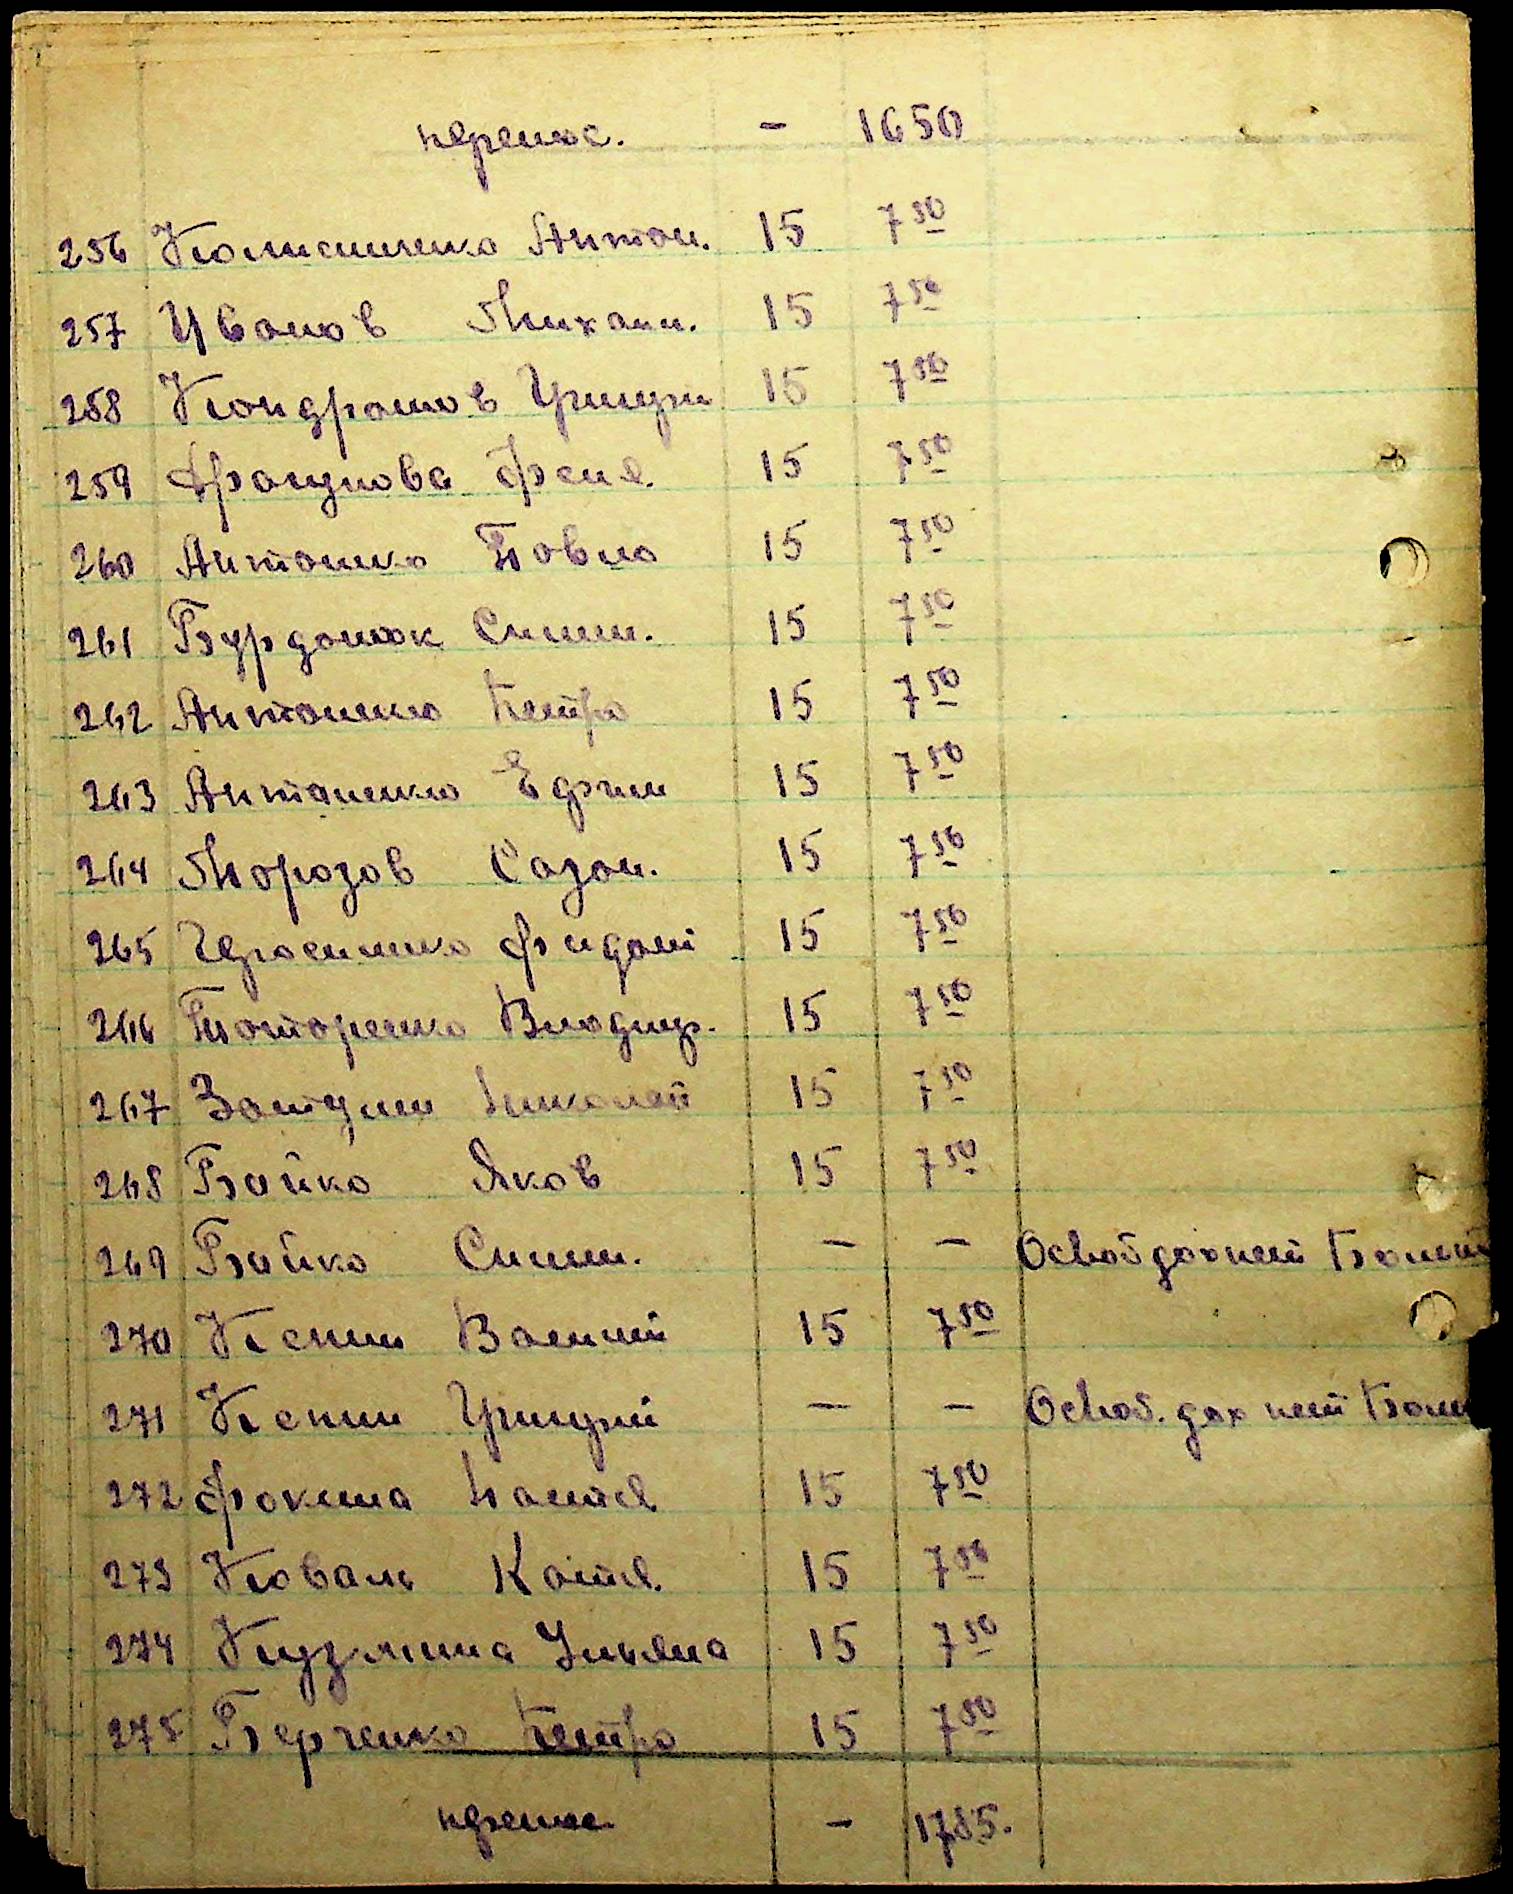 перенос. - 1650
256 Колисниченко Антон. 15 7 50
257 Иванов Михаил. 15 7 50
258 Кондрашов Григри 15 7 50
259 Драгунова Феня. 15 7 50
260 Антошко Павло 15 7 50
261 Бурдонок Симин. 15 7 50
262 Антоненко Петро 15 7 50
263 Антоненко Ефим 15 7 50
264 Морозов Сазон. 15 7 50
265 Герасименко Фидот 15 7 50
266 Титоренко Владмр. 15 7 50
267 Николай 15 7 50
268 Бойко Яков 15 7 50
269 Бойко Симин. - -
270 Кепин Василий 15 7 50
271 Кепин Григрий - - Освоб.
272 Фокина Настя 15 7 50
273 Коваль Катя. 15 7 50
274 Кузмина Ульяна 15 7 50
275 Берченко Петро 15 7 50
перенос - 1785.